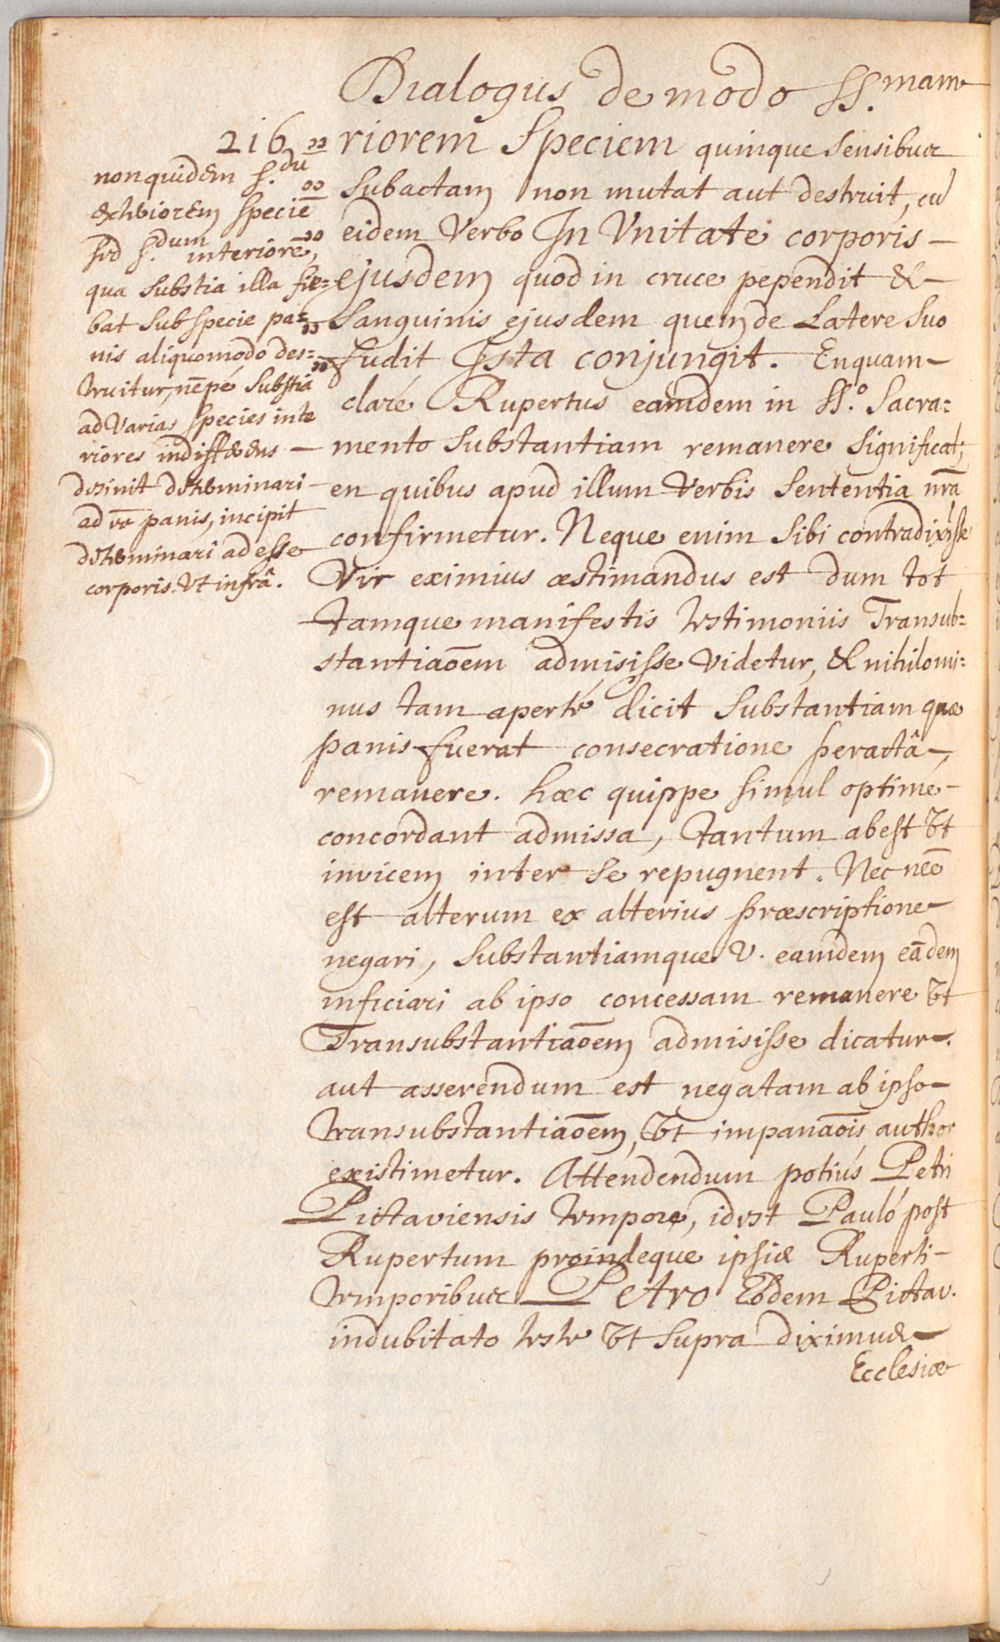 Dialogus de modo SS.mam
216
riorem Speciem quinque Sensibus
Subactam non mutat aut destruit, cū
eidem Verbo In Vnitate corporis
ejusdem quod in cruce pependit &
Sanguinis ejusdem quem de Latere Suo
fudit Ista conjungit. En quam
claré Rupertus eamdem in SS.o Sacra=
mento Substantiam remanere Significat;
en quibus apud illum Verbis Sententia nrã
confirmetur. Neque enim Sibi contradixisse
Vir eximius æstimandus est dum tot
tamque manifestis testimoniis Transub=
stantiaõem admisisse Videtur, & nihilomi=
nus tam aperté dicit Substantiam quæ
panis fuerat consecratione peractâ,
remanere. hæc quippe simul optimé
concordant admissa, tantum abest Vt
invicem inter Se repugnent. Nec neẽ
est alterum ex alterius præscriptione
negari, Substantiamque V. eamdem eãdem
inficiari ab ipso concessam remanere Vt
Transubstantiaõem admisisse dicatur.
aut asserendum est negatam ab ipso
transubstantiaõem, Vt impanaõis author
existimetur. Attendendum potiùs Petri
Pictaviensis tempore, id est Pauló post
Rupertum proindeque ipsis Ruperti
temporibus Petro Eodem Pictav.
indubitato teste Vt Supra diximus
Ecclesiæ
non quidem s.dū
exteriorem speciē
sed s.dum interiorē,
qua Substia illa fie=
bat Sub specie pa=
nis aliquomodo des=
truitur, nẽpé Substia
ad Varias Species inte
riores indifferens
desinit determinari
ad rõ panis, incipit
determinari ad esse
corporis. Vt infrâ.